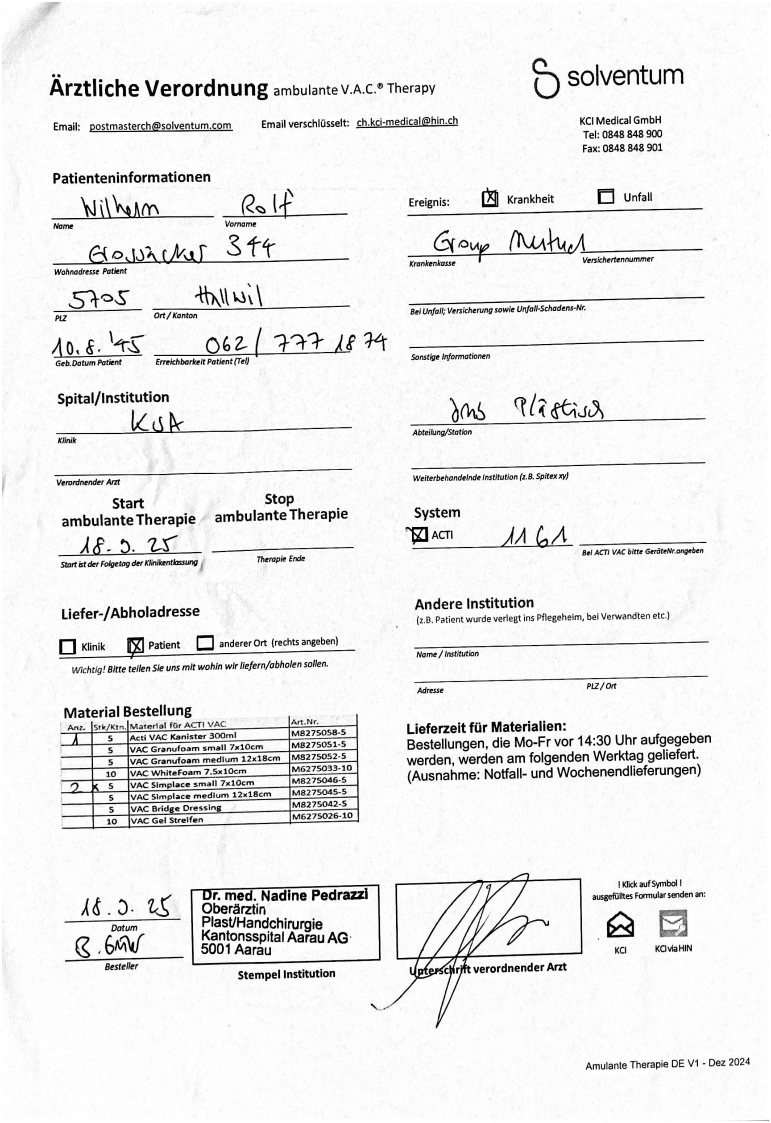 Ärztliche Verordnung ambulante V.A.C.® Therapy
solventum
Email: postmasterch@solventum.com Email verschlüsselt: ch.kci-medical@hin.ch
KCI Medical GmbH
Tel: 0848 848 900
Fax: 0848 848 901
Patienteninformationen
Wilhelm Rolf
Name Vorname
Ereignis: Krankheit Unfall
344
Wohnadresse Patient
Group Mutuel
Krankenkasse Versichertennummer
5705 Hallwil
PLZ Ort / Kanton
Bei Unfall; Versicherung sowie Unfall-Schadens-Nr.
10.8.'45 062 / 777 18 74
Geb.Datum Patient Erreichbarkeit Patient (Tel)
Sonstige Informationen
Spital/Institution
KSA
Klinik
Plastisch
Abteilung/Station
Verordnender Arzt
Weiterbehandelnde Institution (z.B. Spitex xy)
Start Stop
ambulante Therapie ambulante Therapie
18.9.25
Start ist der Folgetag der Klinikentlassung Therapie Ende
System
ACTI 1161
Bei ACTI VAC bitte GeräteNr.angeben
Liefer-/Abholadresse
Klinik Patient anderer Ort (rechts angeben)
Wichtig! Bitte teilen Sie uns mit wohin wir liefern/abholen sollen.
Andere Institution
(z.B. Patient wurde verlegt ins Pflegeheim, bei Verwandten etc.)
Name / Institution
Adresse PLZ / Ort
Material Bestellung
Anz. Stk/Ktn. Material für ACTI VAC Art.Nr.
1 5 Acti VAC Kanister 300ml M8275058-5
5 VAC Granufoam small 7x10cm M8275051-5
5 VAC Granufoam medium 12x18cm M8275052-5
10 VAC WhiteFoam 7.5x10cm M6275033-10
2 x 5 VAC Simplace small 7x10cm M8275046-5
5 VAC Simplace medium 12x18cm M8275045-5
5 VAC Bridge Dressing M8275042-5
10 VAC Gel Streifen M6275026-10
Lieferzeit für Materialien:
Bestellungen, die Mo-Fr vor 14:30 Uhr aufgegeben
werden, werden am folgenden Werktag geliefert.
(Ausnahme: Notfall- und Wochenendlieferungen)
18.9.25
Datum
Besteller
Dr. med. Nadine Pedrazzi
Oberärztin
Plast/Handchirurgie
Kantonsspital Aarau AG
5001 Aarau
Stempel Institution
Unterschrift verordnender Arzt
! Klick auf Symbol !
ausgefülltes Formular senden an:
KCI KCI via HIN
Amulante Therapie DE V1 - Dez 2024